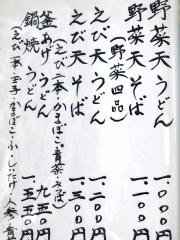 野菜天うどん 一、〇〇〇円
野菜天そば 一、一〇〇円
(野菜四品)
えび天うどん 一、二〇〇円
えび天そば 一、三〇〇円
(えび二本・かまぼこ・青菜・みつば)
釜あげうどん 九五〇円
鍋焼うどん 一、五五〇円
(えび・玉子・かまぼこ・ふ・しいたけ・人参・青